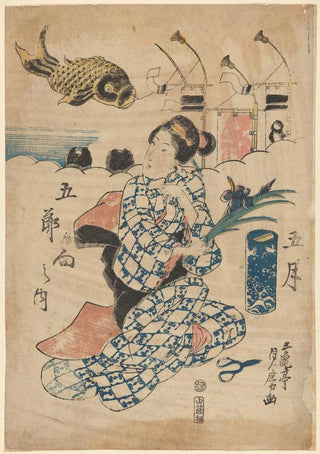 五月
五節句之内
五亀亭
貞房画